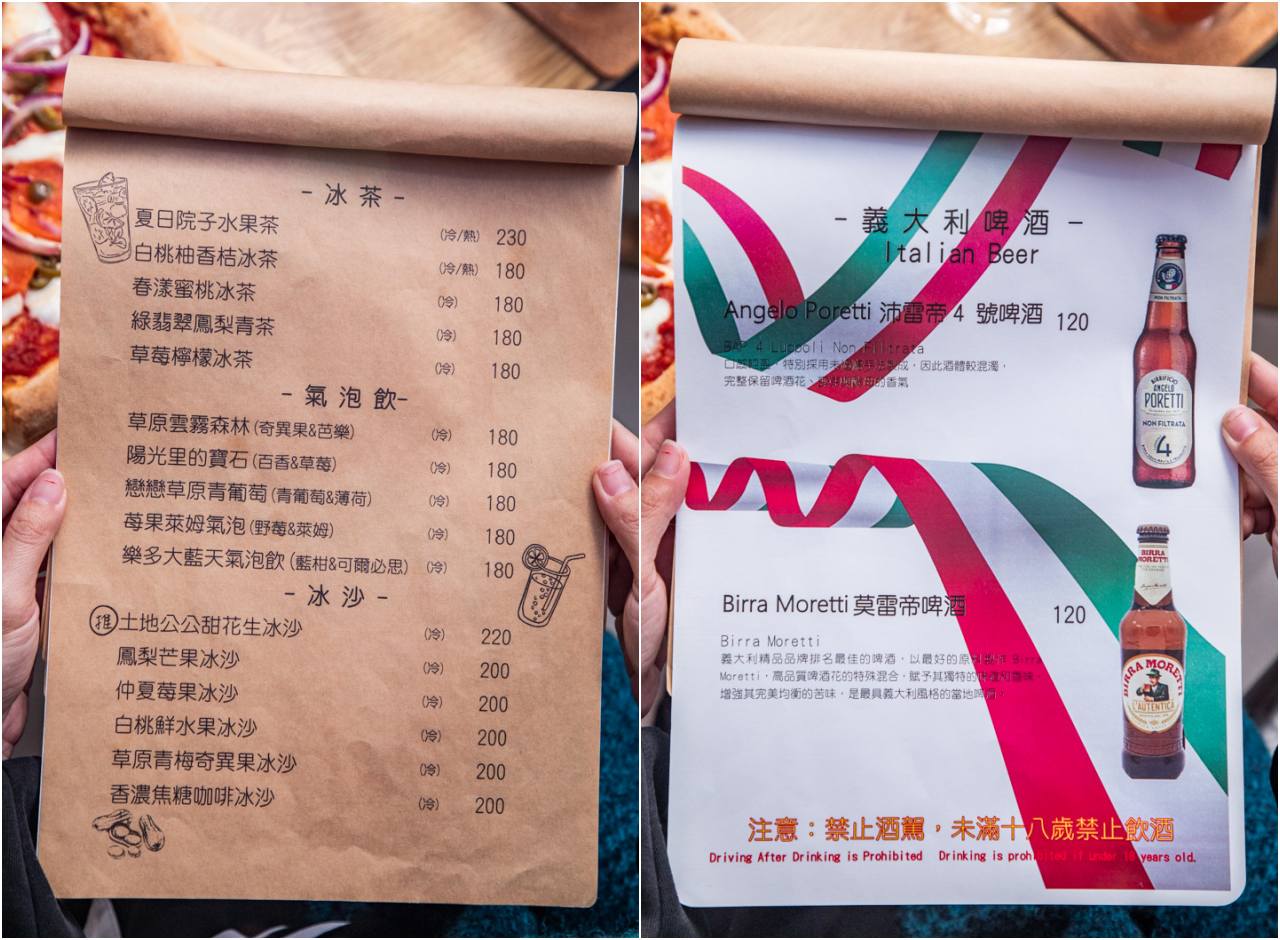 -冰茶-
夏日院子水果茶 (冷/熱) 230
白桃柚香桔冰茶 (冷/熱) 180
春漾蜜桃冰茶 (冷) 180
綠翡翠鳳梨青茶 (冷) 180
草莓檸檬冰茶 (冷) 180
-氣泡飲-
草原雲霧森林(奇異果&芭樂) (冷) 180
陽光里的寶石(百香&草莓) (冷) 180
戀戀草原青葡萄(青葡萄&薄荷) (冷) 180
莓果萊姆氣泡(野莓&萊姆) (冷) 180
樂多大藍天氣泡飲(藍柑&可爾必思) (冷) 180
-冰沙-
推 土地公公甜花生冰沙 (冷) 220
鳳梨芒果冰沙 (冷) 200
仲夏莓果冰沙 (冷) 200
白桃鮮水果冰沙 (冷) 200
草原青梅奇異果冰沙 (冷) 200
香濃焦糖咖啡冰沙 (冷) 200
-義大利啤酒-
Italian Beer
Angelo Poretti 沛雷帝 4 號啤酒 120
4 Luppoli Non Filtrata
口感輕盈，特別採用未過濾手法製成，因此酒體較混濁，
完整保留啤酒花、的香氣
BIRRIFICIO
ANGELO
PORETTI
NON FILTRATA
4
Birra Moretti 莫雷帝啤酒 120
Birra Moretti
義大利精品品牌排名最佳的啤酒，以最好的原料製作 Birra
Moretti，高品質啤酒花的特殊混合，賦予其獨特的味道和香味，
增強其完美均衡的苦味，是最具義大利風格的當地啤酒。
BIRRA
MORETTI
BIRRA MORETTI
L'AUTENTICA
注意：禁止酒駕，未滿十八歲禁止飲酒
Driving After Drinking is Prohibited Drinking is prohibited if under 18 years old.